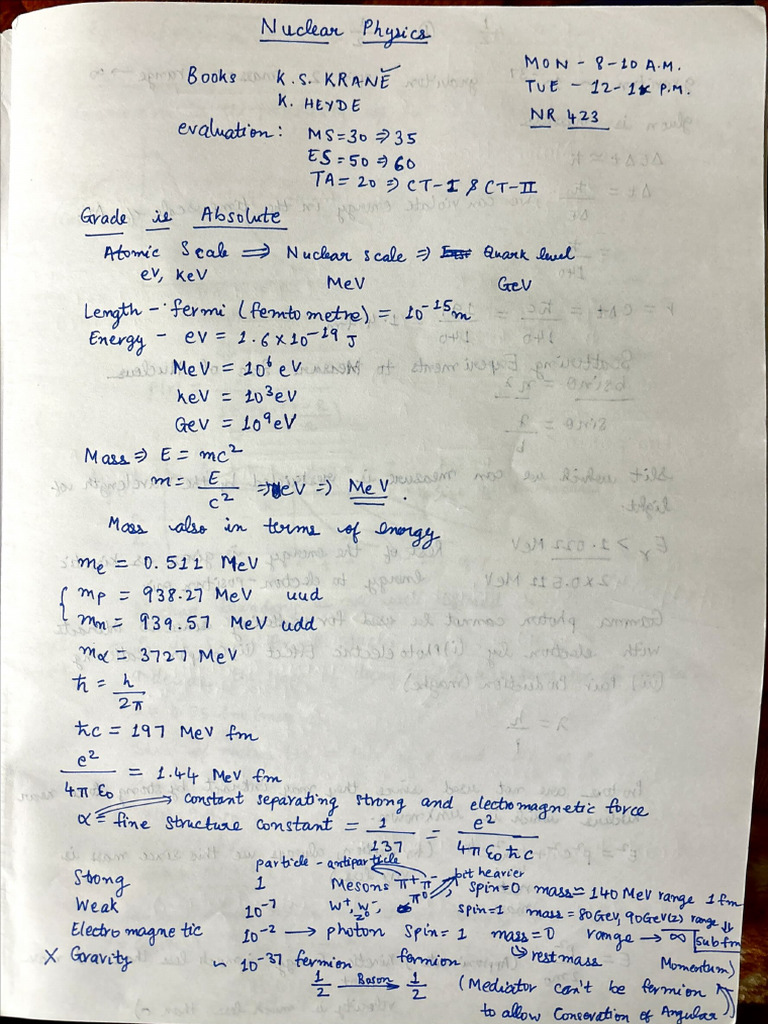 Nuclear Physics
Books K.S. KRANE ✓
K. HEYDE
MON - 8-10 A.M.
TUE - 12-1 P.M.
NR 423
evaluation: MS=30 ⇒ 35
ES=50 ⇒ 60
TA=20 ⇒ CT-I & CT-II
Grade is Absolute
Atomic Scale ⟹ Nuclear scale ⇒ Quark level
eV, KeV MeV GeV
Length - fermi (femtometre) = 10⁻¹⁵m
Energy - eV = 1.6×10⁻¹⁹J
MeV = 10⁶ eV
keV = 10³eV
GeV = 10⁹eV
Mass ⇒ E = mc²
m = E/c² ⇒ MeV ⇒ MeV.
Mass also in terms of energy
me = 0.511 MeV
{ mp = 938.27 MeV uud
mn = 939.57 MeV udd
mα = 3727 MeV
ħ = h/2π
ħc = 197 MeV fm
e²/4πε₀ = 1.44 MeV fm
→ constant separating strong and electromagnetic force
α = fine structure constant = 1/137 = e²/4πε₀ħc
particle - antiparticle
Strong 1 Mesons π⁺π⁻ π⁰ → bit heavier spin=0 mass=140 MeV range 1fm
Weak 10⁻⁷ W⁺, W⁻, Z⁰ spin=1 mass=80GeV, 90GeV(Z) range ⇒ subfm
Electromagnetic 10⁻² → photon spin=1 mass=0 range → ∞
→ rest mass
X Gravity ~ 10⁻³⁷ fermion fermion
1/2 Boson → 1/2 (Mediator can't be fermion
to allow Conservation of Angular
Momentum)